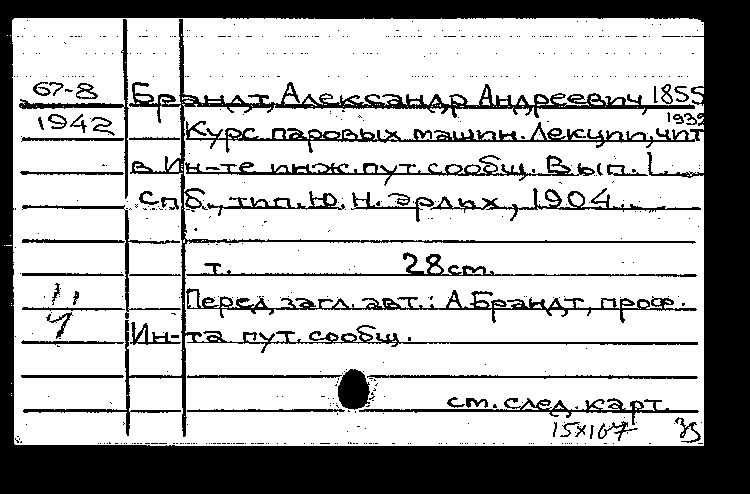 67-8 Брандт, Александр Андреевич, 1855
1932
1942 Курс паровых машин. Лекции, чит
в Ин-те инж. пут. сообщ. Вып. 1.
Спб., тип. Ю. Н. Эрлих, 1904.
т. 28 cm.
Перед загл. авт.: А. Брандт, проф.
Ин-та пут. сообщ.
см. след. карт.
15×107